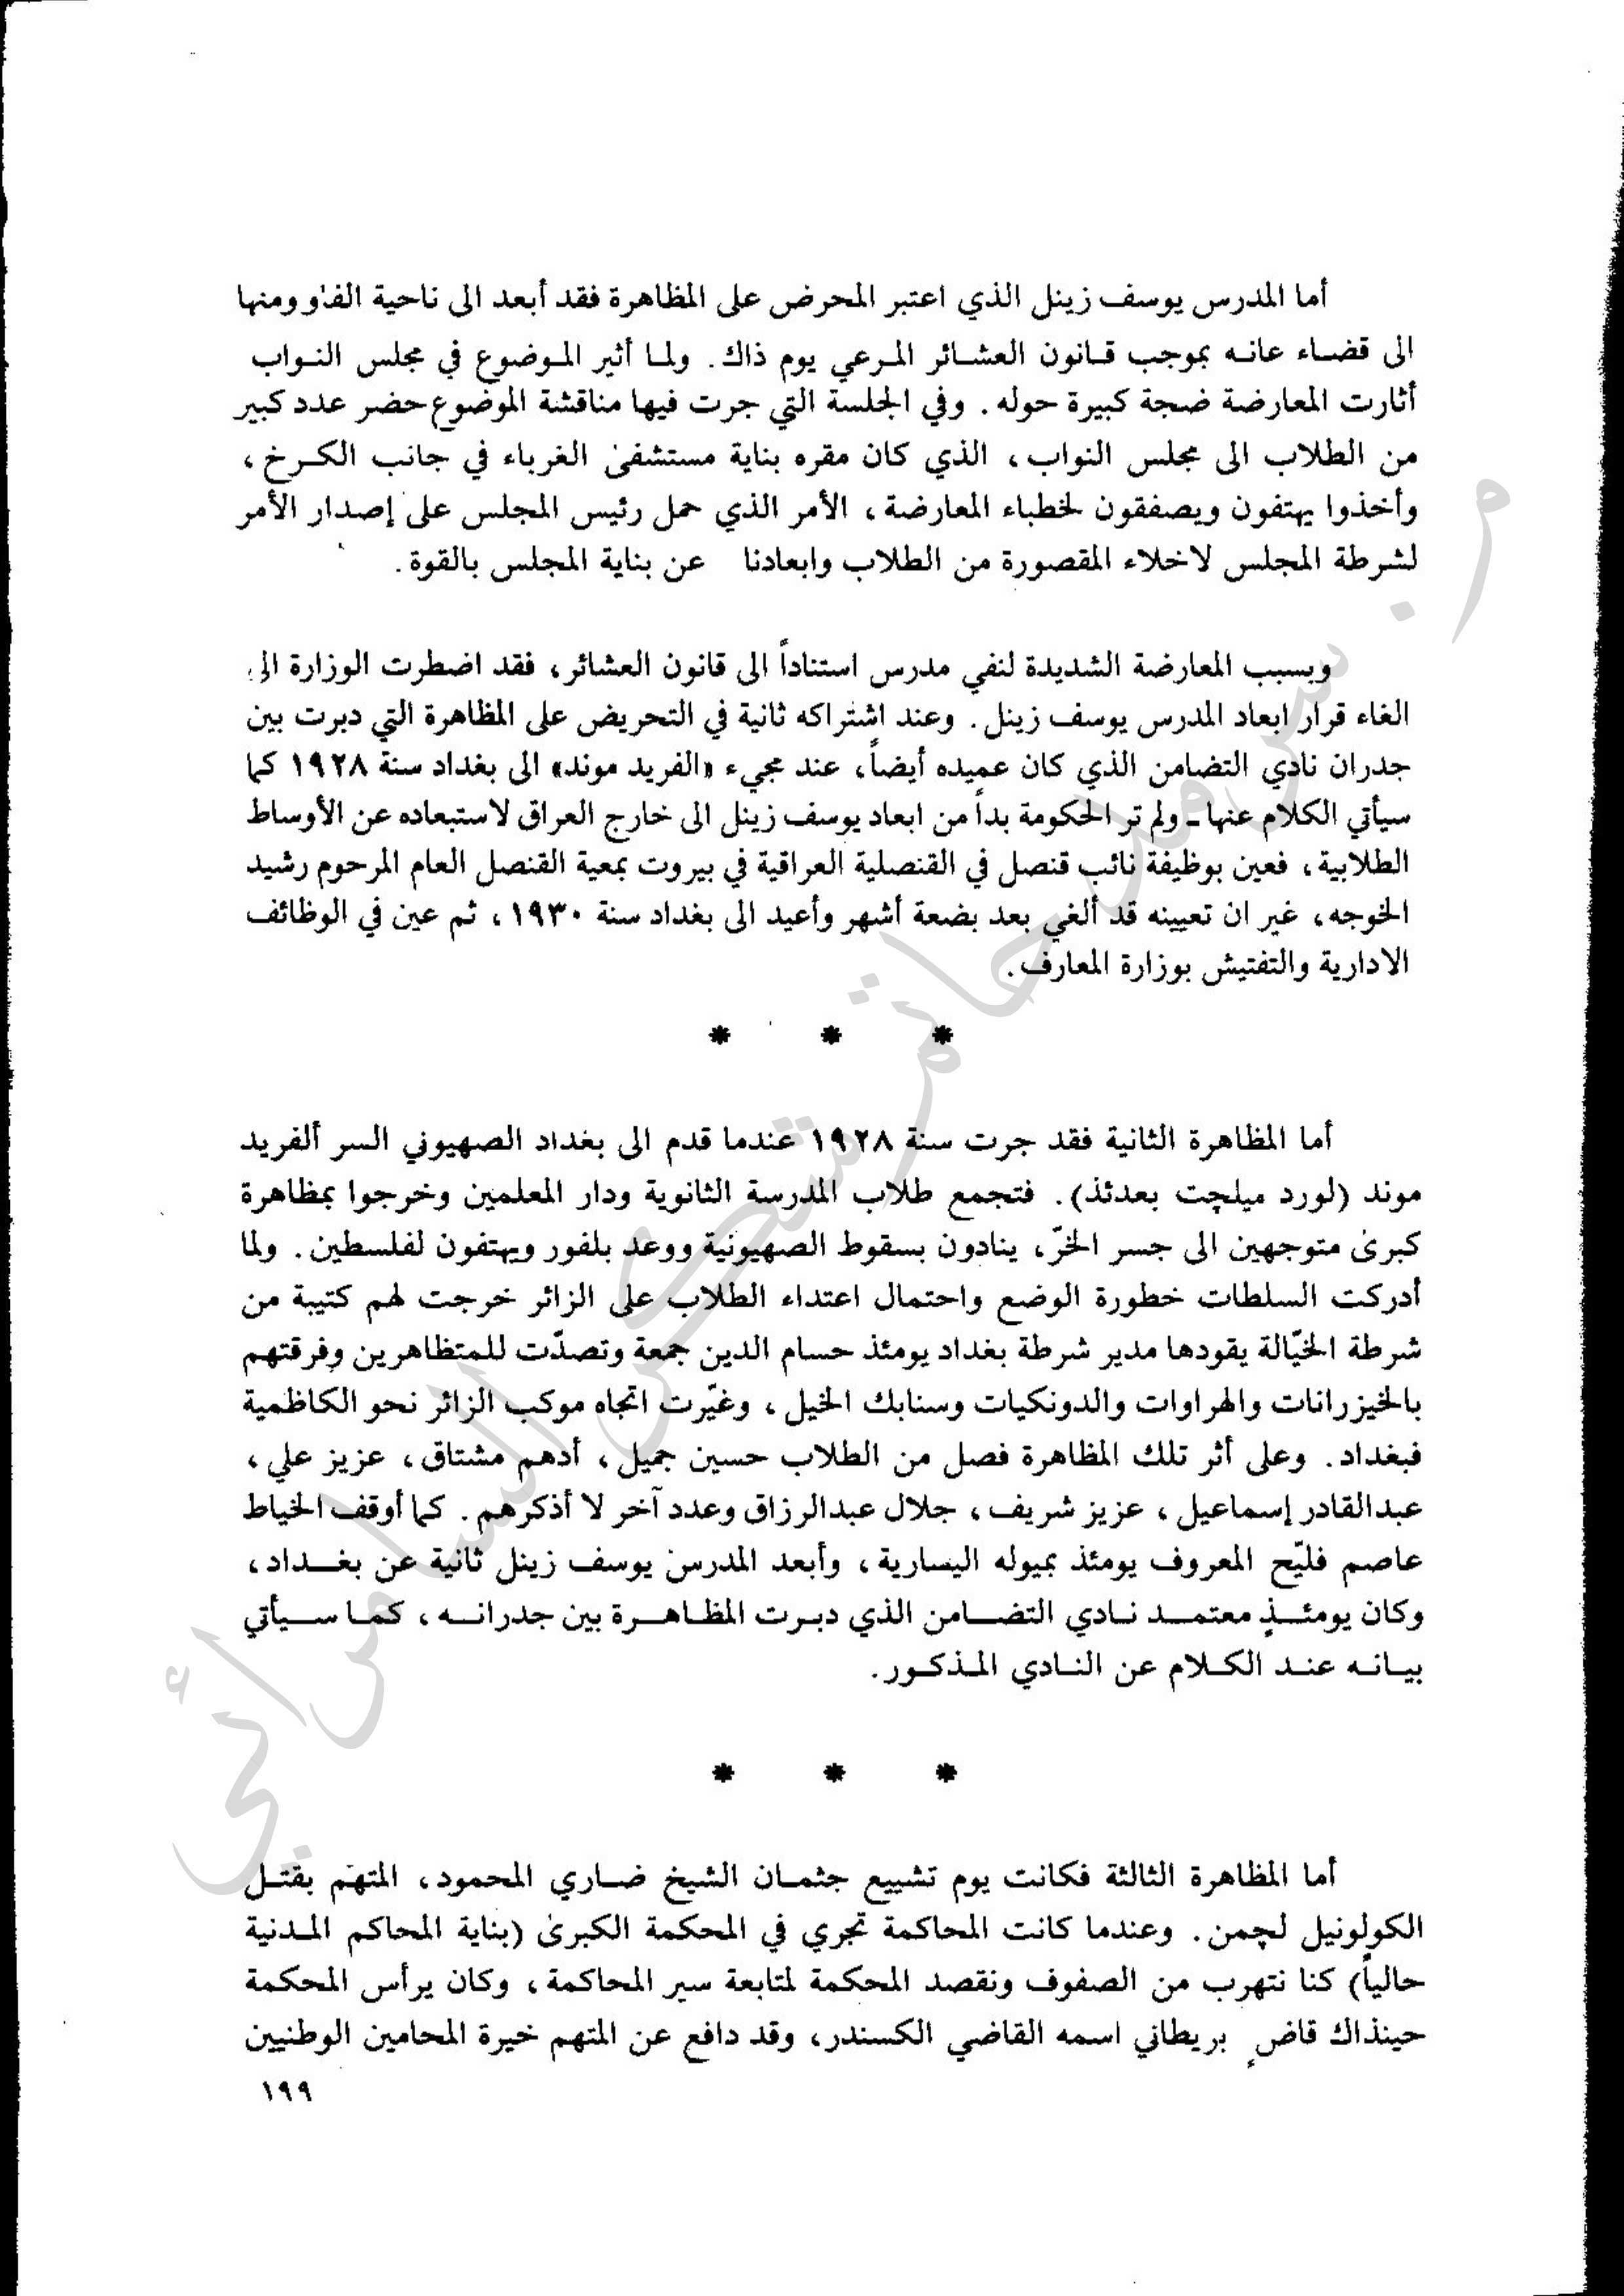 أما المدرس يوسف زينل الذي اعتبر المحرض على المظاهرة فقد أبعد الى ناحية الفاو ومنها
الى قضاء عانه بموجب قانون العشائر المرعي يوم ذاك. ولما أثير الموضوع في مجلس النواب
أثارت المعارضة ضجة كبيرة حوله. وفي الجلسة التي جرت فيها مناقشة الموضوع حضر عدد كبير
من الطلاب الى مجلس النواب، الذي كان مقره بناية مستشفى الغرباء في جانب الكرخ،
وأخذوا يهتفون ويصفقون لخطباء المعارضة، الأمر الذي حمل رئيس المجلس على إصدار الأمر
لشرطة المجلس لاخلاء المقصورة من الطلاب وابعادنا عن بناية المجلس بالقوة.
وبسبب المعارضة الشديدة لنفي مدرس استناداً الى قانون العشائر، فقد اضطرت الوزارة الى
الغاء قرار ابعاد المدرس يوسف زينل. وعند اشتراكه ثانية في التحريض على المظاهرة التي دبرت بين
جدران نادي التضامن الذي كان عميده أيضاً، عند مجيء «الفريد موند» الى بغداد سنة ١٩٢٨ كما
سيأتي الكلام عنها ـ ولم تر الحكومة بداً من ابعاد يوسف زينل الى خارج العراق لاستبعاده عن الأوساط
الطلابية، فعين بوظيفة نائب قنصل في القنصلية العراقية في بيروت بمعية القنصل العام المرحوم رشيد
الخوجه، غير ان تعيينه قد ألغي بعد بضعة أشهر وأعيد الى بغداد سنة ١٩٣٠، ثم عين في الوظائف
الادارية والتفتيش بوزارة المعارف.
* * *
أما المظاهرة الثانية فقد جرت سنة ١٩٢٨ عندما قدم الى بغداد الصهيوني السر ألفريد
موند (لورد ميلچت بعدئذ). فتجمع طلاب المدرسة الثانوية ودار المعلمين وخرجوا بمظاهرة
كبرى متوجهين الى جسر الخرّ، ينادون بسقوط الصهيونية ووعد بلفور ويهتفون لفلسطين. ولما
أدركت السلطات خطورة الوضع واحتمال اعتداء الطلاب على الزائر خرجت لهم كتيبة من
شرطة الخيّالة يقودها مدير شرطة بغداد يومئذ حسام الدين جمعة وتصدّت للمتظاهرين وفرقتهم
بالخيزرانات والهراوات والدونكيات وسنابك الخيل، وغيّرت اتجاه موكب الزائر نحو الكاظمية
فبغداد. وعلى أثر تلك المظاهرة فصل من الطلاب حسين جميل، أدهم مشتاق، عزيز علي،
عبدالقادر إسماعيل، عزيز شريف، جلال عبدالرزاق وعدد آخر لا أذكرهم. كما أوقف الخياط
عاصم فليّح المعروف يومئذ بميوله اليسارية، وأبعد المدرس يوسف زينل ثانية عن بغداد،
وكان يومئذٍ معتمد نادي التضامن الذي دبرت المظاهرة بين جدرانه، كما سيأتي
بيانه عند الكلام عن النادي المذكور.
* * *
أما المظاهرة الثالثة فكانت يوم تشييع جثمان الشيخ ضاري المحمود، المتهم بقتل
الكولونيل لچمن. وعندما كانت المحاكمة تجري في المحكمة الكبرى (بناية المحاكم المدنية
حالياً) كنا نتهرب من الصفوف ونقصد المحكمة لمتابعة سير المحاكمة، وكان يرأس المحكمة
حينذاك قاضٍ بريطاني اسمه القاضي الكسندر، وقد دافع عن المتهم خيرة المحامين الوطنيين
١٩٩
م. سرمد حاتم شكر السامرائي